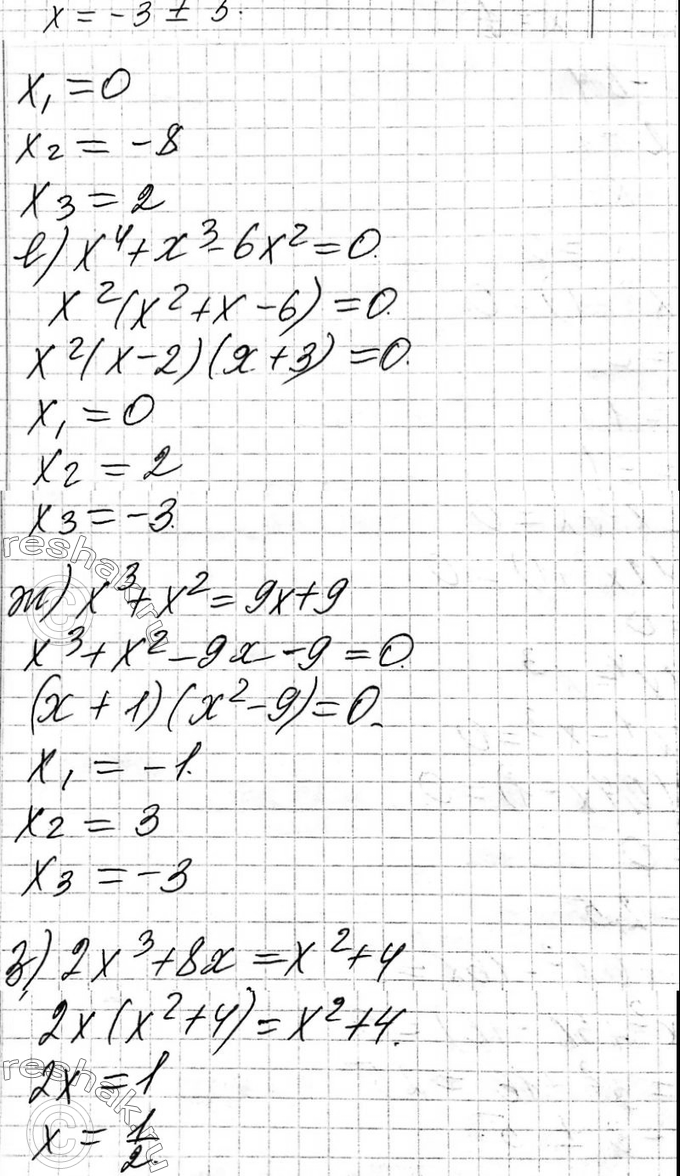 x = -3 ± 5.
x₁ = 0
x₂ = -8
x₃ = 2
е) x⁴ + x³ - 6x² = 0.
x²(x² + x - 6) = 0.
x²(x - 2)(x + 3) = 0.
x₁ = 0
x₂ = 2
x₃ = -3.
reshak.ru
ж) x³ + x² = 9x + 9
x³ + x² - 9x - 9 = 0.
(x + 1)(x² - 9) = 0.
x₁ = -1.
x₂ = 3
x₃ = -3
з) 2x³ + 8x = x² + 4
2x(x² + 4) = x² + 4.
2x = 1
x = 1/2.
reshak.ru